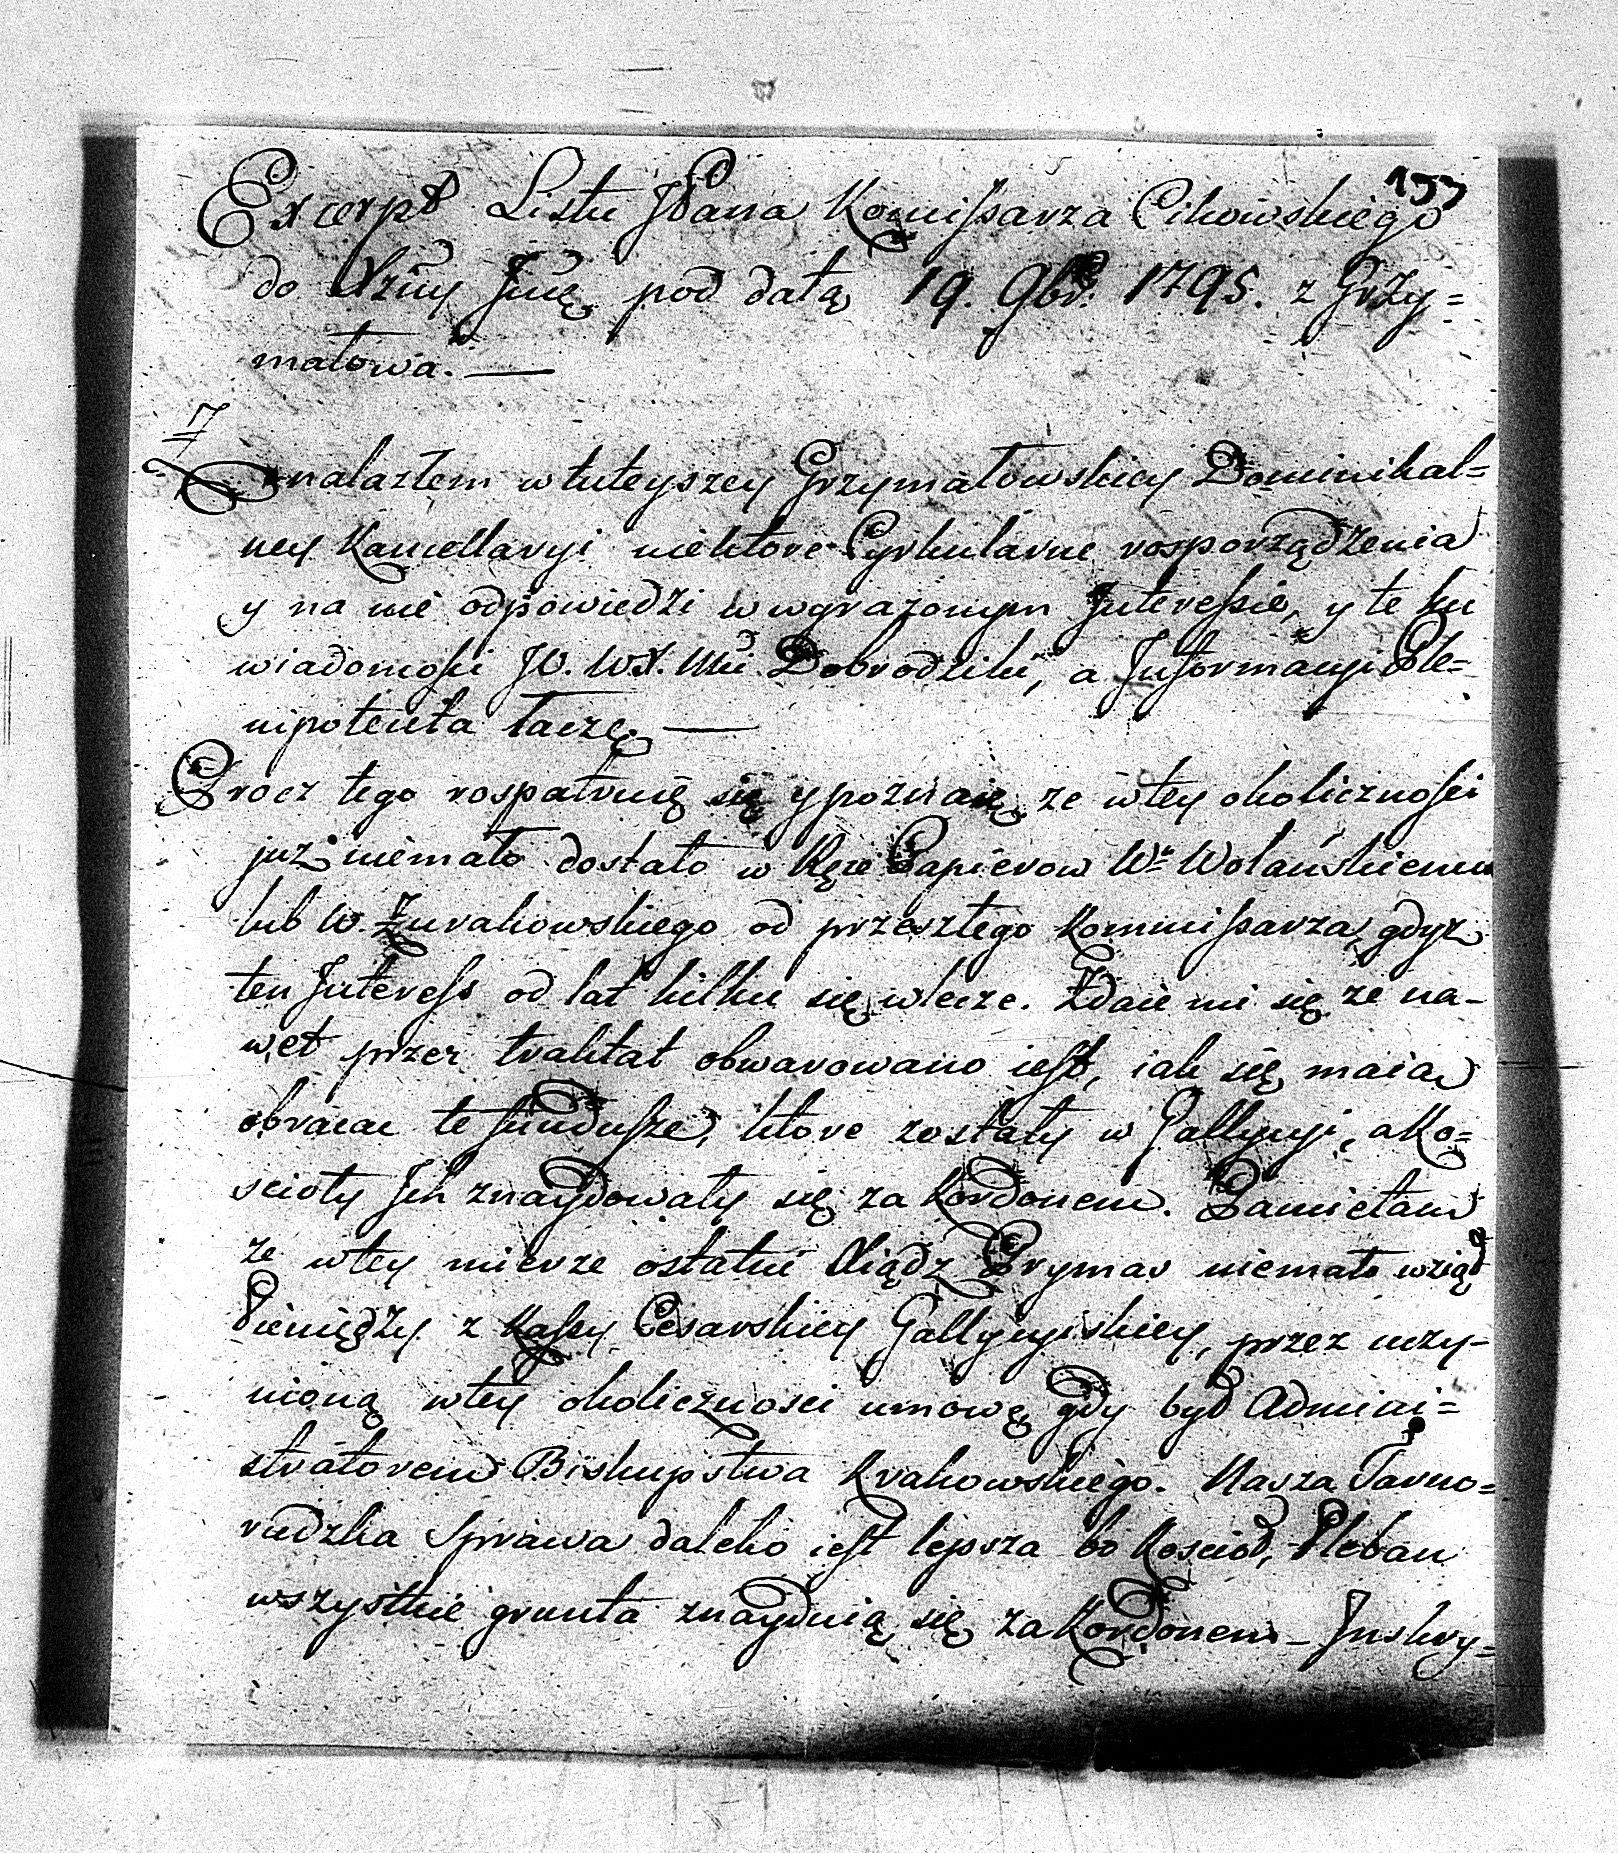 193
Excerpt Listu JPana Kommissarza Cikowskiego
do Xżny Jmć pod datą 19. 9br. 1795. z Grzy=
małowa. —
Znalazłem w tuteyszey Grzymałowskiey Dominikal=
ney Kancellaryi niektore Cyrkularne rosporządzenia
y na nie odpowiedzi w wyrażonym Interessie, y te ku
wiadomości JO. WX. Mci Dobrodziki, a Informacyi Ple=
nipotenta łaczę. —
Procz tego rospatruię się y poznaię, ze w tey okoliczności
juz niemało dostało w Ręce Papierow Wu Wolańskiemu
lub W. Żurakowskiego od przeszłego Kommissarza, gdyz
ten Interess od lat kilku się wlecze. Zdaie mi się ze na-
wet przez traktat obwarowano iest, iak się maią
obracac te fundusze, ktore zostały w Gallycyi, a Ko=
scioły Jch znaydowały się za Kordonem. Pamietam
ze w tey mierze ostatni Xiądz Prymas niemało wziął
Pieniędzy z Kassy Cesarskiey Gallycyiskiey, przez uczy-
nioną w tey okoliczności umowę gdy był Admini=
stratorem Biskupstwa Krakowskiego. Nasza Tarno=
rudzka Sprawa daleko iest lepsza bo Koscioł, Pleban
wszystkie grunta znayduią się za Kordonem – Inskry=